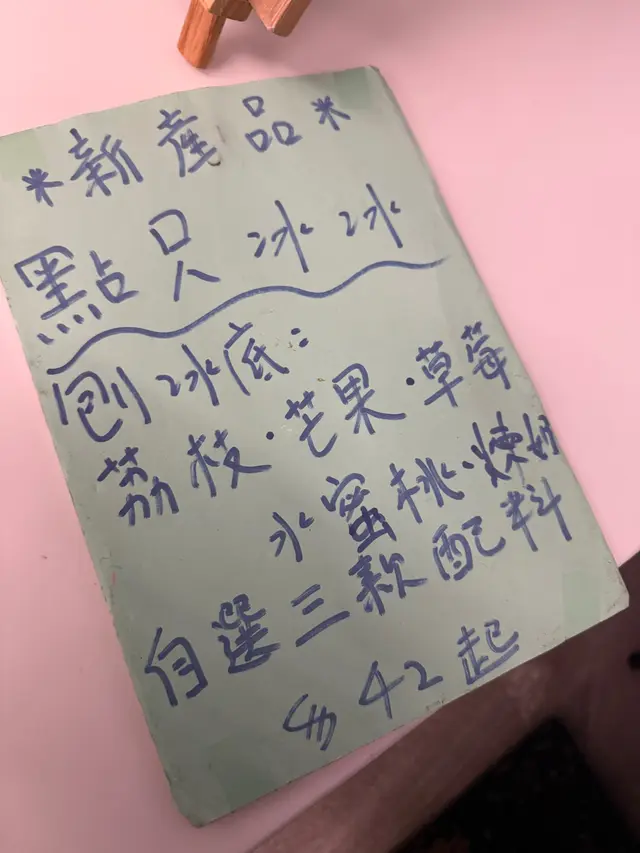 *新產品*
點只冰冰
刨冰底:
荔枝·芒果·草莓
水蜜桃·煉奶
自選三款配料
$42起